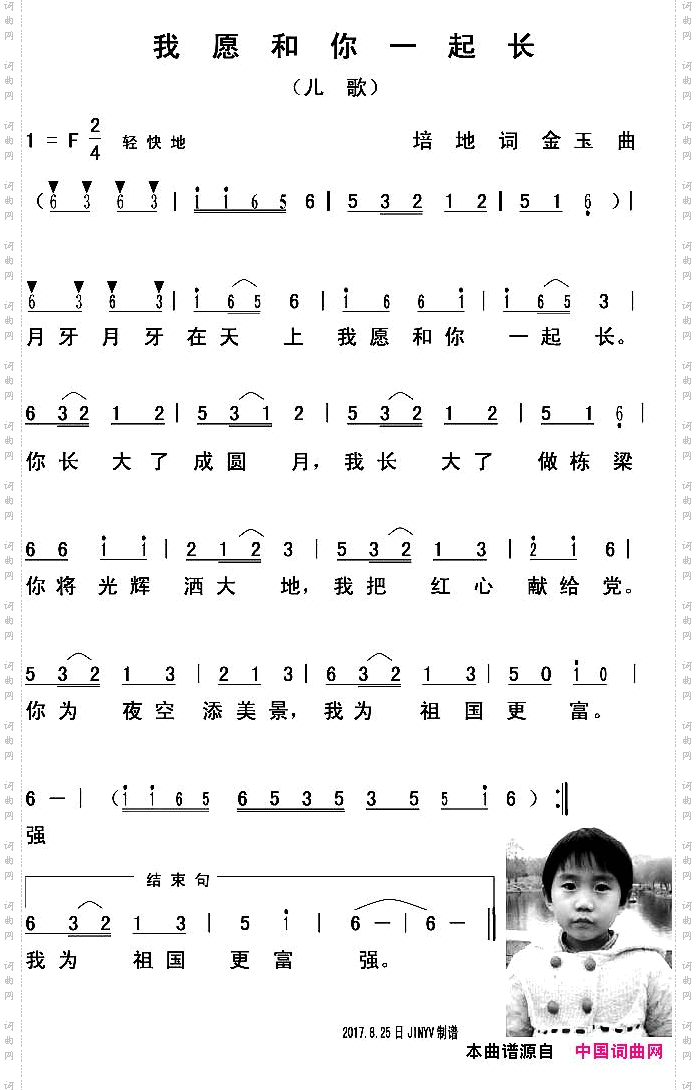 我愿和你一起长
（儿歌）
1=F 2/4 轻快地 培地词 金玉曲
（6 3 6 3 | i i 6 5 6 | 5 3 2 1 2 | 5 1 6 ）|
6 3 6 3 | i 6 5 6 | i 6 6 i | i 6 5 3 |
月牙月牙在天上 我愿和你 一起长。
6 3 2 1 2 | 5 3 1 2 | 5 3 2 1 2 | 5 1 6 |
你长 大了 成圆 月，我长 大了 做栋梁
6 6 i i | 2 1 2 3 | 5 3 2 1 3 | 2 i 6 |
你将光辉 洒大 地，我把 红心 献给党。
5 3 2 1 3 | 2 1 3 | 6 3 2 1 3 | 5 0 i 0 |
你为 夜空 添美景，我为 祖国更 富。
6 — |（i i 6 5 6 5 3 5 3 5 5 i 6 ）:||
强
结束句
6 3 2 1 3 | 5 i | 6 — | 6 — ||
我为 祖国 更富 强。
2017.8.25日JINYV制谱
本曲谱源自 中国词曲网
词曲网